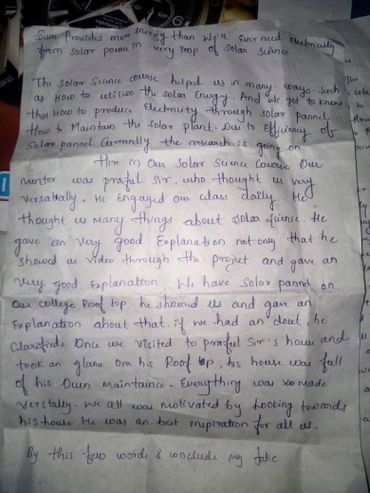 Sun Provides more Energy than we'll ever need Electricity
from solar power in very top of Solar Science.
The Solar Science course helped us in many ways. such
as How to utilize the solar Energy. And we got to know
that How to produce Electricity through solar pannel,
How to Maintain the solar plant. Due to Efficiency of
Solar pannel Currently the research is going on
Here in Our Solar Science Course Our
mentor was praful sir, who thought us very
versatially, He Engaged our class daily. He
thought us Many things about Solar Science. He
gave an very good Explanation not only that he
showed us video through the project and gave an
very good Explanation. We have Solar pannel on
Our college Roof top he showed us and gave an
Explanation about that. if we had an dout, he
Clarifide Once we visited to praful Sir's house and
took an glance over his Roof top, his house was full
of his Own Maintaince. Everything was made
verstally. We all was motivated by Looking towards
his house He was an best inspiration for all us.
By this few words I conclude my